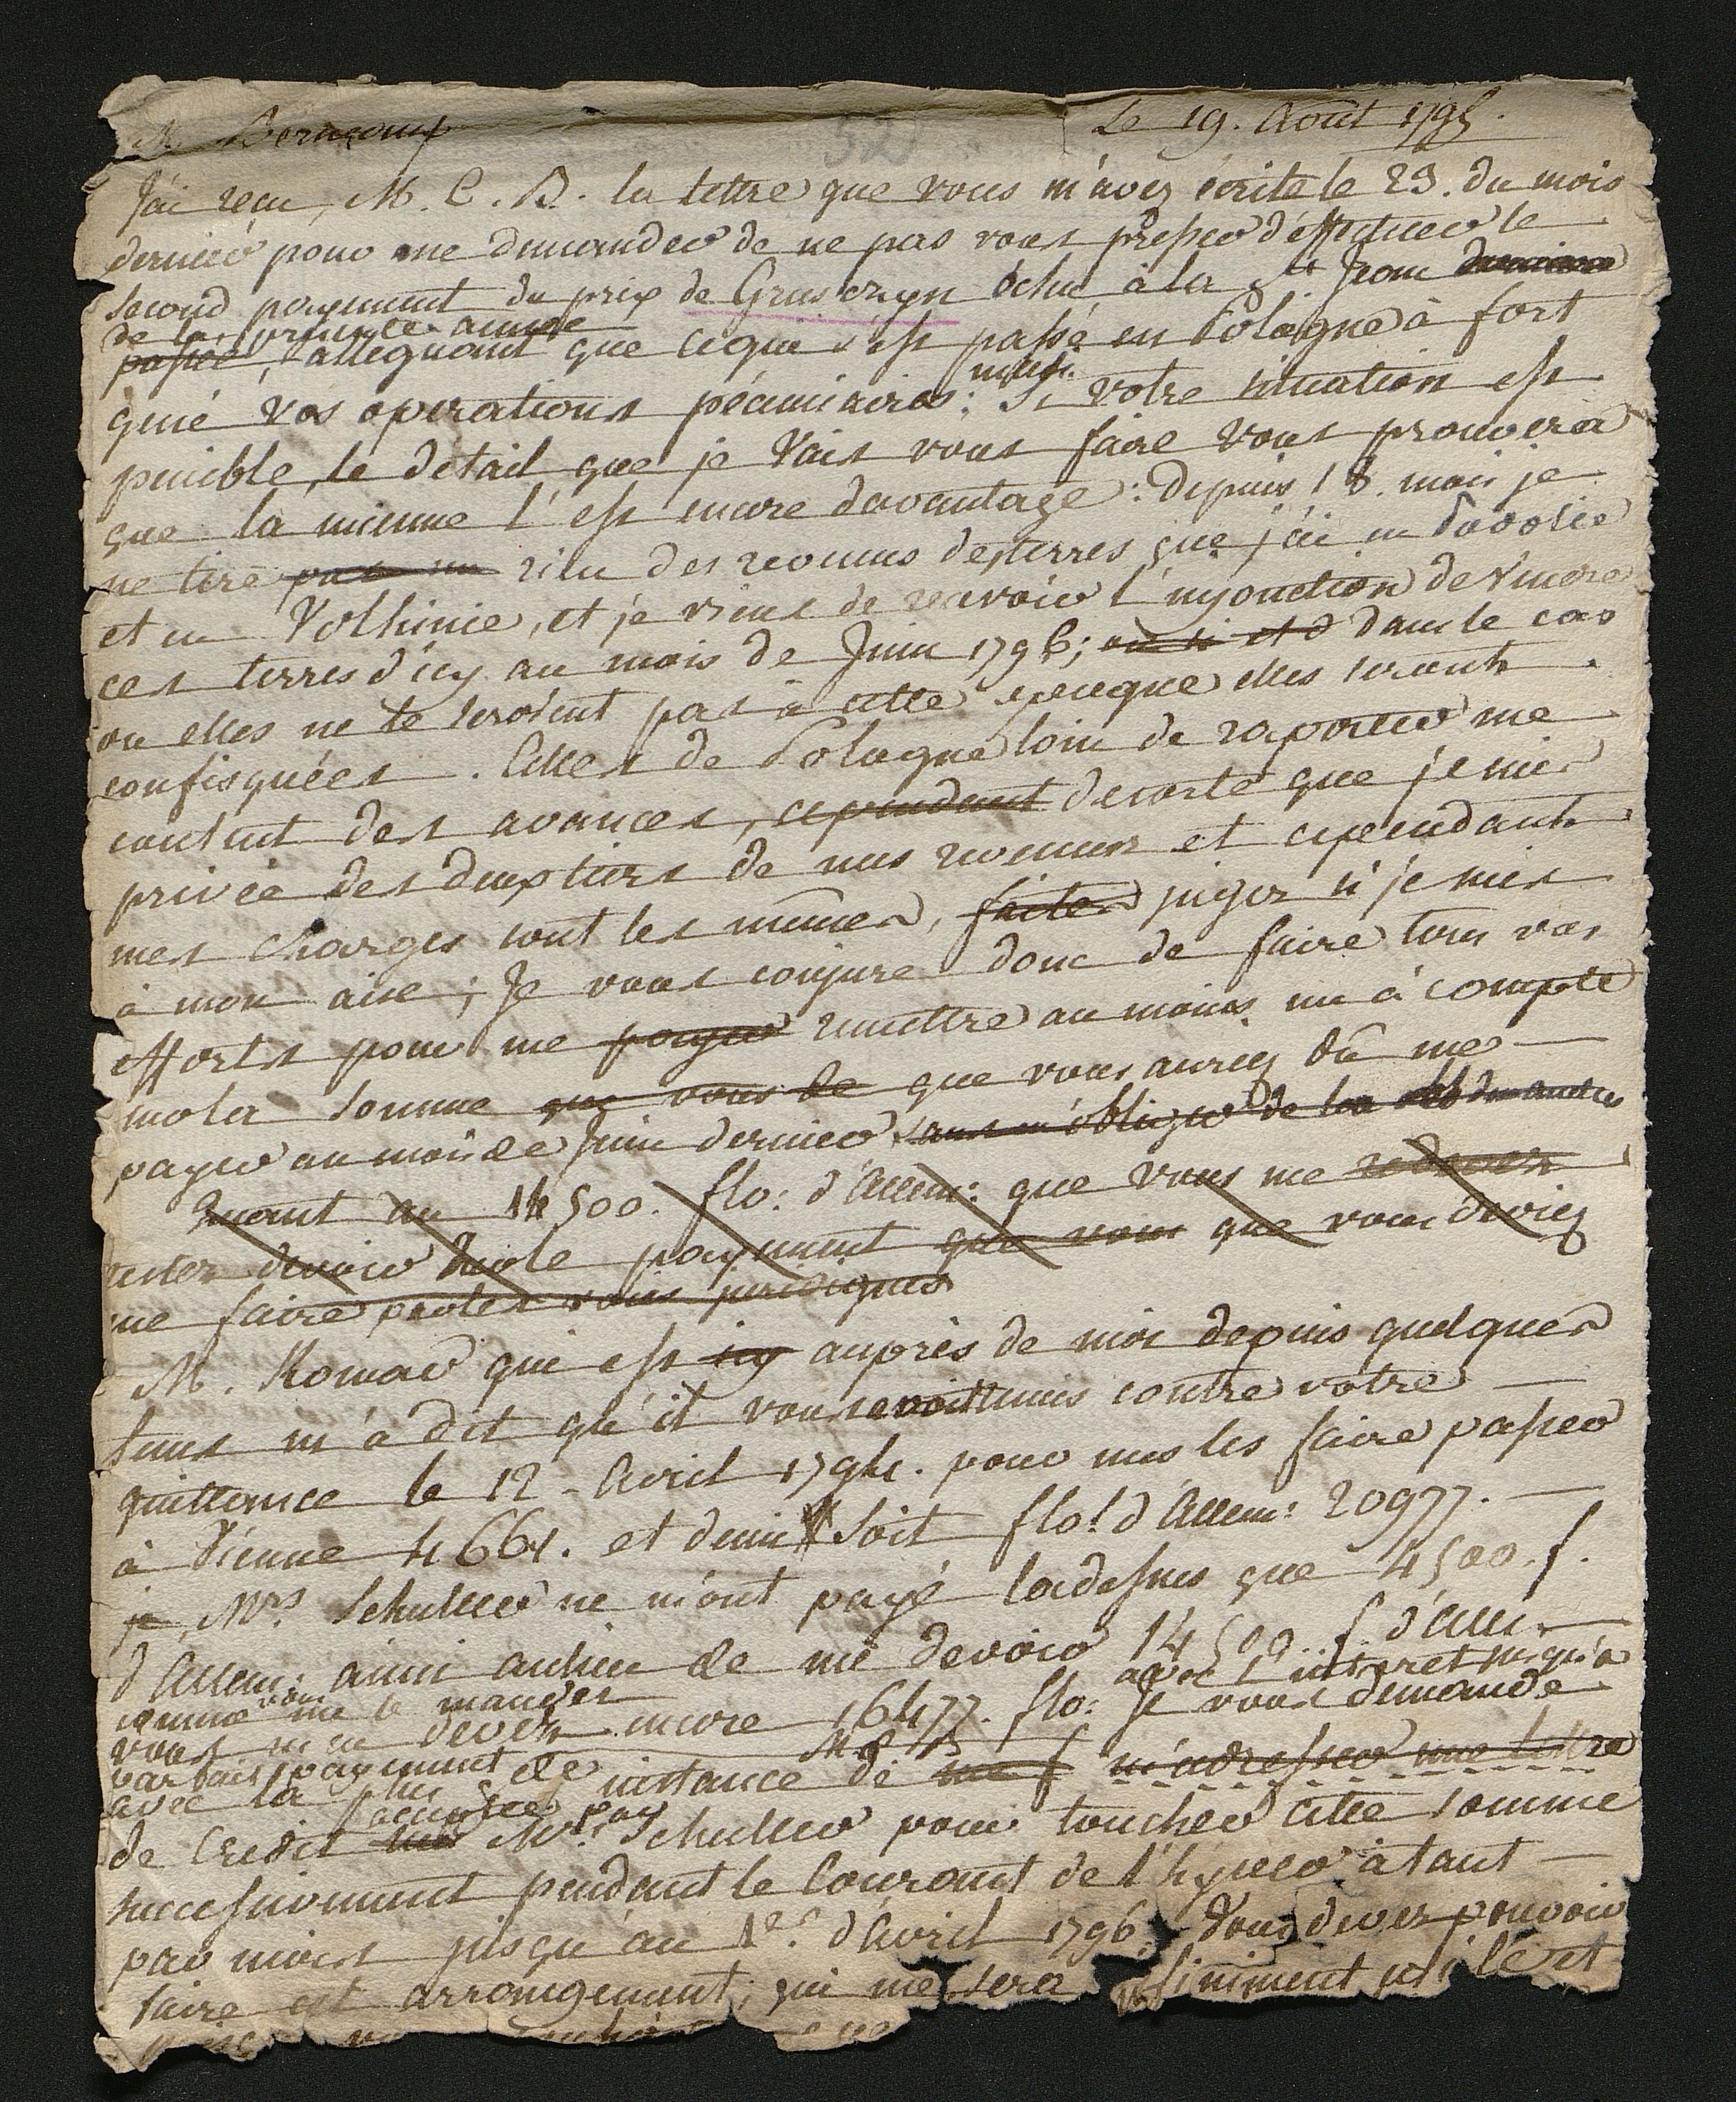 M. Le 19. Août 1795.
52
J'ai reçu, M. C. B. la lettre que vous m'avez écrite le 23. du mois
dernier pour me demander de ne pas vous presser d'effectuer le
second payement du prix de Gruszczyn échu à la St Jean
de la presente année
passée, alleguant que ce qui s'est passé en Pologne à fort
gené vos operations pécuniaires: Si votre situation est
penible, le detail que je vais vous faire vous prouvera
que la mienne l'est encore davantage: depuis 18. mois je
ne tire rien des revenus des terres que j'ai en Podolie
et en Volhinie, et je viens de recevoir l'injonction de vendre
ces terres d'icy au mois de Juin 1796; ou si et d dans le cas
ou elles ne le seroient pas à cette epoque elles seront
confisquées. Celles de Pologne loin de raporter me
coutent des avances, cependant desorte que je suis
privée des deux tiers de mes revenus et cependant
mes charges sont les mêmes, faites jugez si je suis
à mon aise; Je vous conjure donc de faire tous vos
efforts pour me payer remettre au moins un à compte
sur la somme que vous de que vous auriez dû me
payer au mois de Juin dernier sans m'obliger de la
Quant au 14500. flo: d'Allem: que vous me redevez
restez devoir sur le payement que vous que vous deviez
me faire
M. Komar qui est icy auprès de moi depuis quelques
tems m'a dit qu'il vous avoit remis contre votre
quittance le 12. Avril 1794. pour nous les faire passer
à Vienne 4661. et demi soit flo: d'Allem: 20977.
je, Mrs Schuller ne m'ont payé ladessus que 4500. f.
d'Allem: ainsi aulieu de me devoir 14500. f. d'Allem.
comme vous me le mandez
avec l'interet jusqu'à
vous m'en devez encore 16477. flo: Je vous demande
parfait payement
M C B
avec la plus de instance de me f m'adresser une lettre
acceptée par
de Credit sur Mrs. Schuller pour toucher cette somme
successivement pendant le Courant de l'hyver à tant
par mois jusqu'au 1er. d'Avril 1796. Vous devez pouvoir
faire cet arrangement, qui me sera infiniment utile et